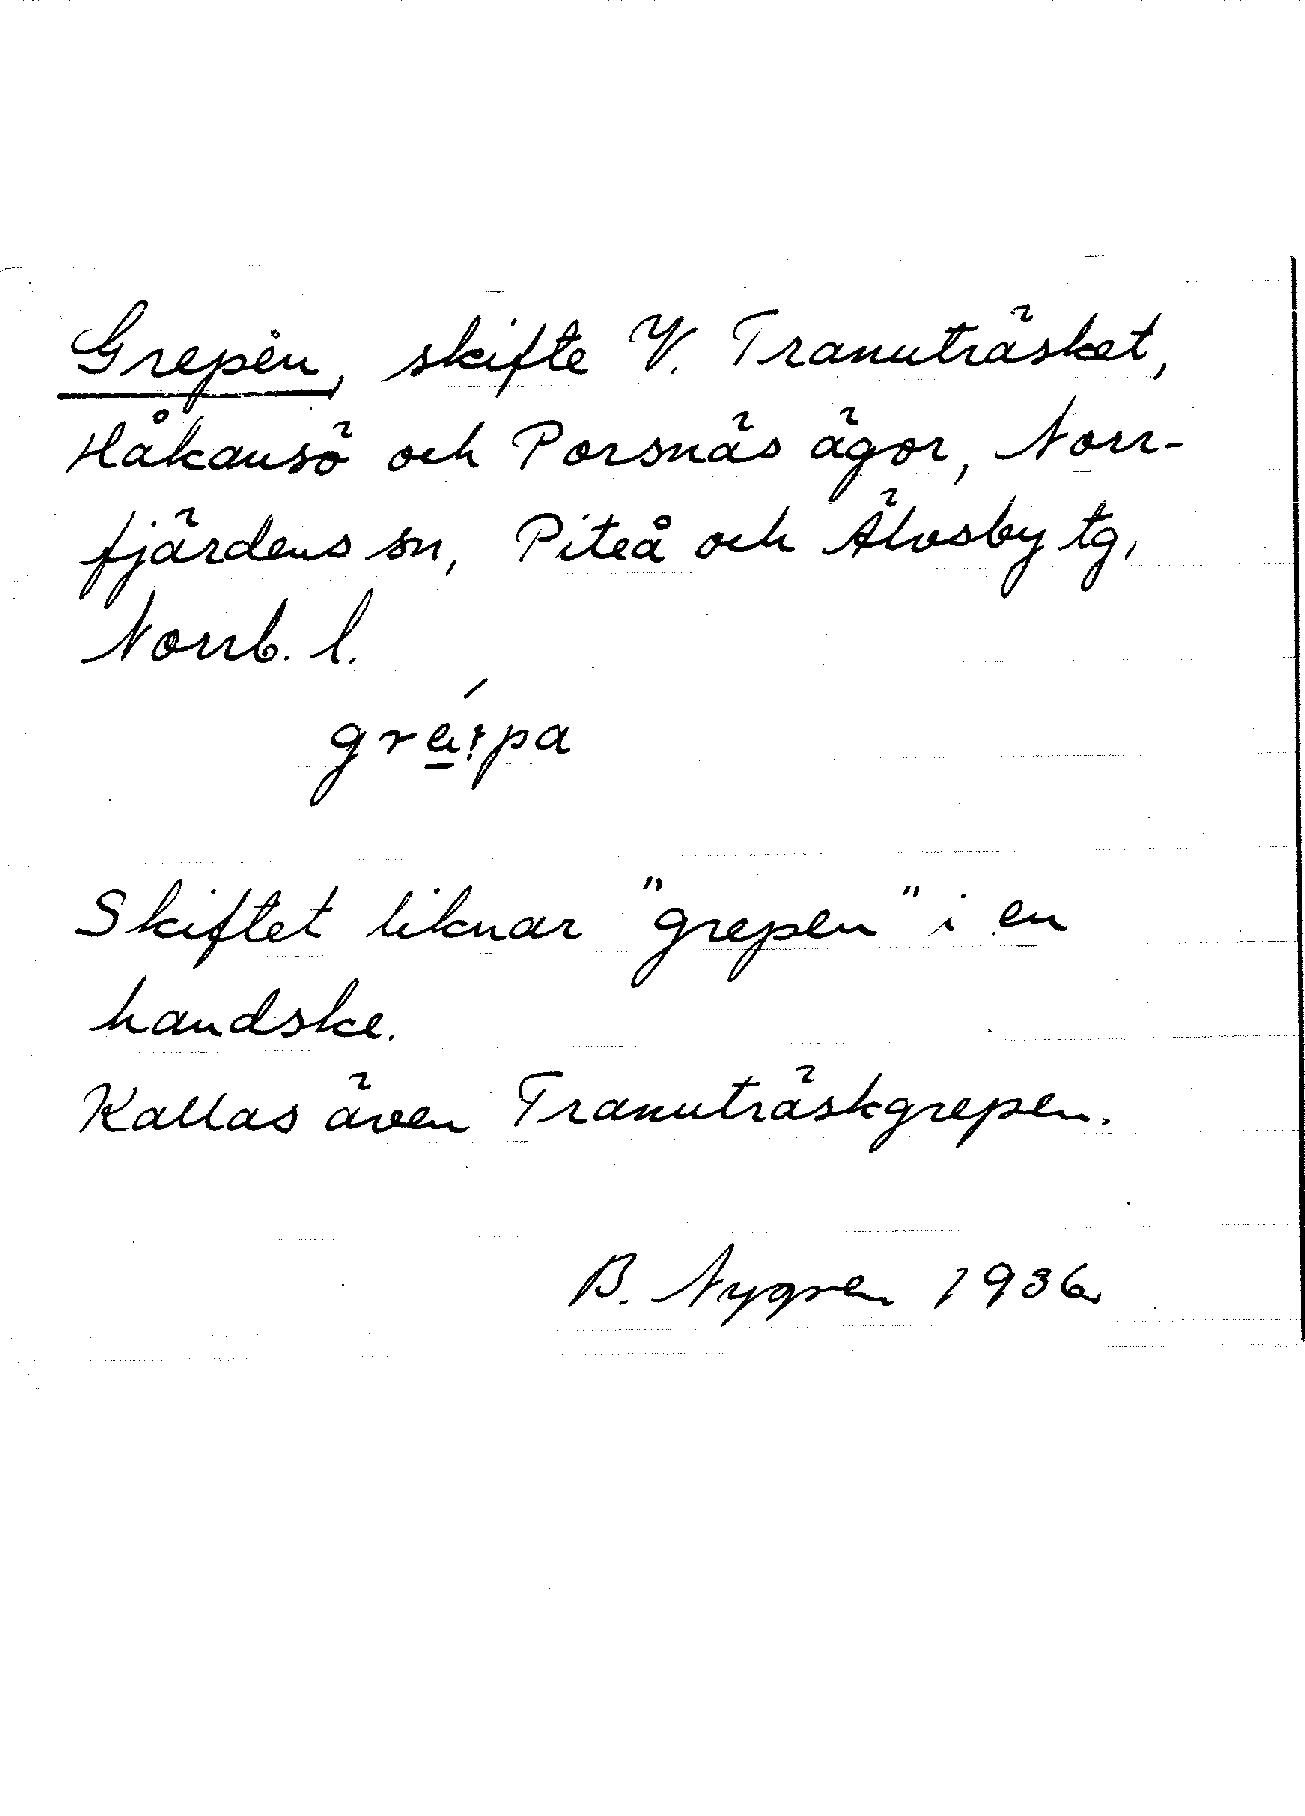 Grepen, skifte V. Tranuträsket,
Håkansö och Porsnäs ägor, Norr-
fjärdens sn, Piteå och Älvsby tg,
Norrb. l.
Skiftet liknar "grepen" i en
handske.
Kallas även Tranuträskgrepen.
B. Nygren 1936